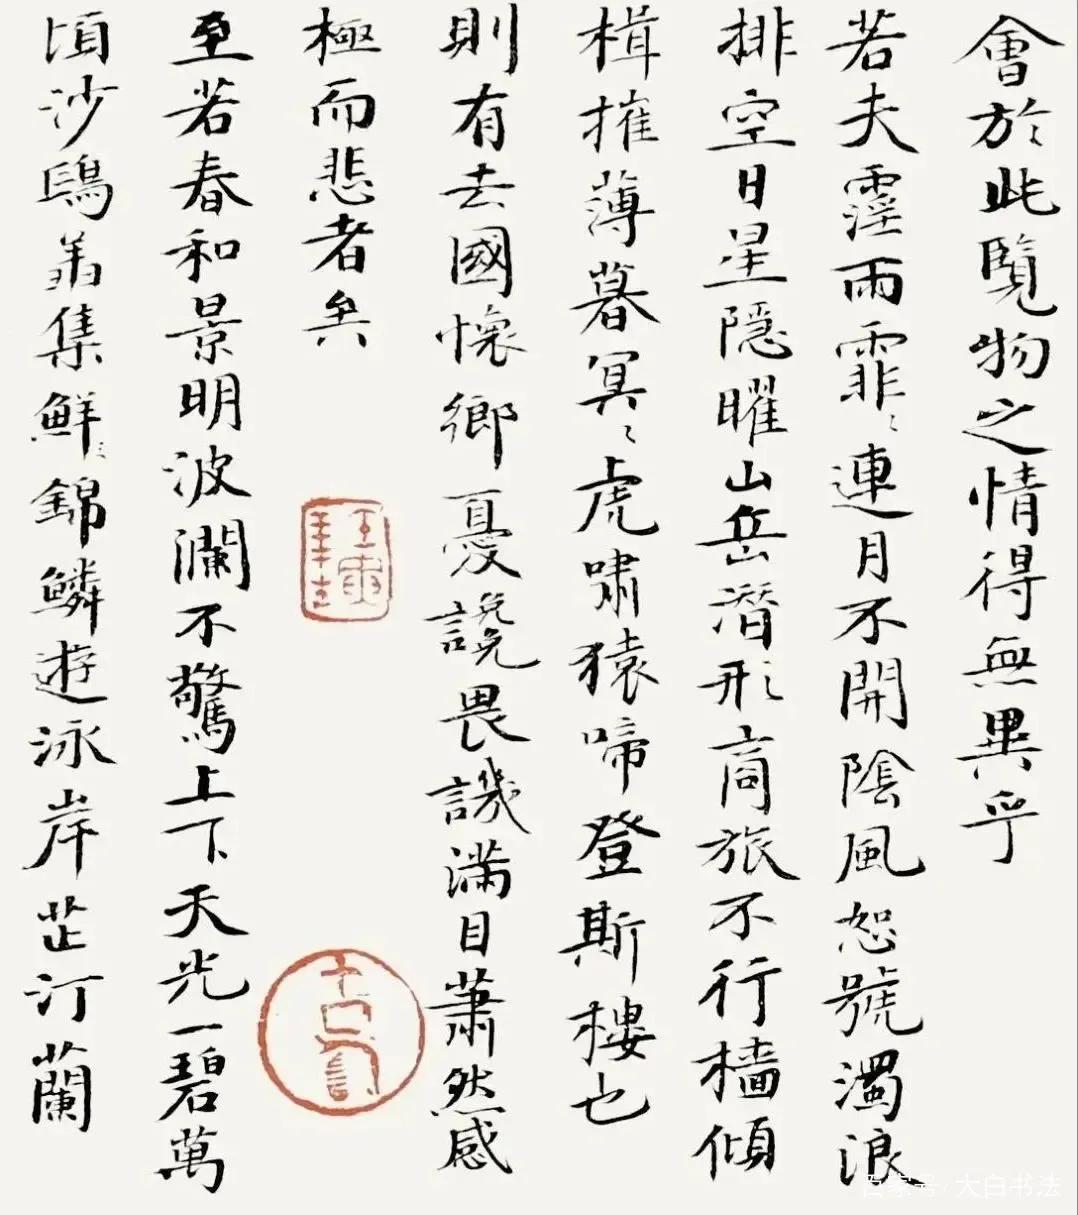 會於此覽物之情得無異乎
若夫霪雨霏〻連月不開陰風怒號濁浪
排空日星隱曜山岳潛形商旅不行檣傾
楫摧薄暮冥〻虎嘯猿啼登斯樓也
則有去國懷鄉憂讒畏譏滿目蕭然感
極而悲者矣
至若春和景明波瀾不驚上下天光一碧萬
頃沙鷗翔集鮮〻錦鱗遊泳岸芷汀蘭
百家号/大白书法